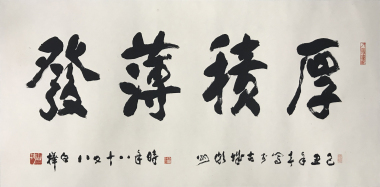 厚積薄發
己丑年春寫於古城
時年八十又八 白樺